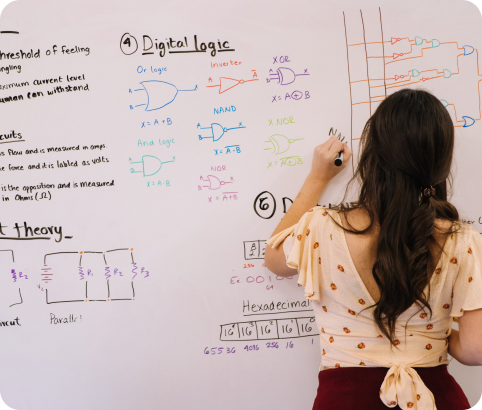 threshold of feeling
tingling
maximum current level
human can withstand
circuits
is flow and is measured in amps
force and it is labled as volts
is the apposition and is measured
in Ohms (Ω)
t theory
R2
R1
R2
R3
Parallel
4 Digital logic
Or logic
A
B
X
X = A + B
And logic
X = A · B
Inverter
A
A̅
NAND
A
B
X
X = A̅·̅B̅
NOR
A
B
X
X = A̅+̅B̅
XOR
A
B
X
X = A ⊕ B
X NOR
5
Hexadecimal
16⁴ 16³ 16² 16¹ 16⁰
65536 4096 256 16 1